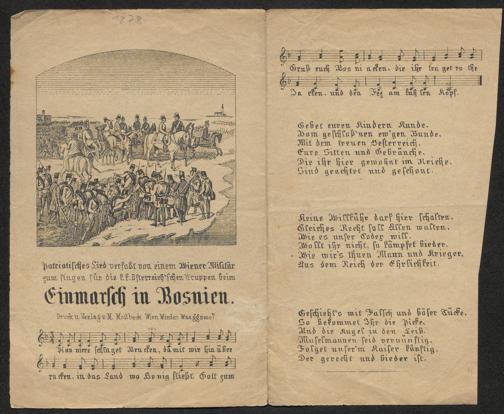 1878
Patriotisches Lied verfaßt von einem Wiener Militär
zum singen für die k.k. Österreich'schen Truppen beim
Einmarsch in Bosnien.
Druck u. Verlag v. M. Wien, Wieden
schlaget Brucken, damit wir hinüber
rucken, in das Land wo Honig fließt. Gott zum
Gruß euch Bosniacken, die ihr traget rothe
Jacken, und den Fez am Kopf.
Gebet euren Kindern Kunde.
Vom geschloß'nen ew'gen Bunde.
Mit dem treuen Oesterreich.
Eure Sitten und Gebräuche.
Die ihr hier gewohnt im Reiche.
Sind geachtet und geschont.
Keine Willkühr darf hier schalten.
Gleiches Recht soll Allen walten.
Wie es unser Codex will.
Wollt ihr nicht, so kämpfet bieder.
Wie wir's thuen Mann und Krieger,
Aus dem Reich der Ehrlichkeit.
Geschieht's mit Falsch und böser Tücke.
So bekommet Ihr die Picke.
Und die Kugel in den Leib.
Muselmannen seid vernünftig.
Folget unser'm Kaiser künftig.
Der gerecht und bieder ist.